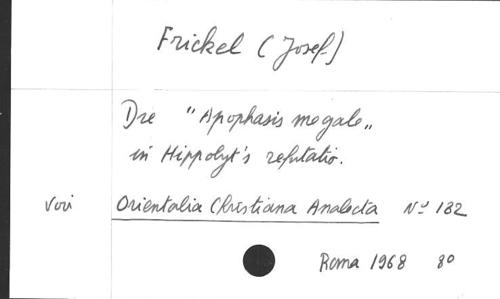 Frickel (Josef)
Die "Apophasis megale„
in Hippolyt's refutatio.
Voir Orientalia Christiana Analecta No 182
Roma 1968 80